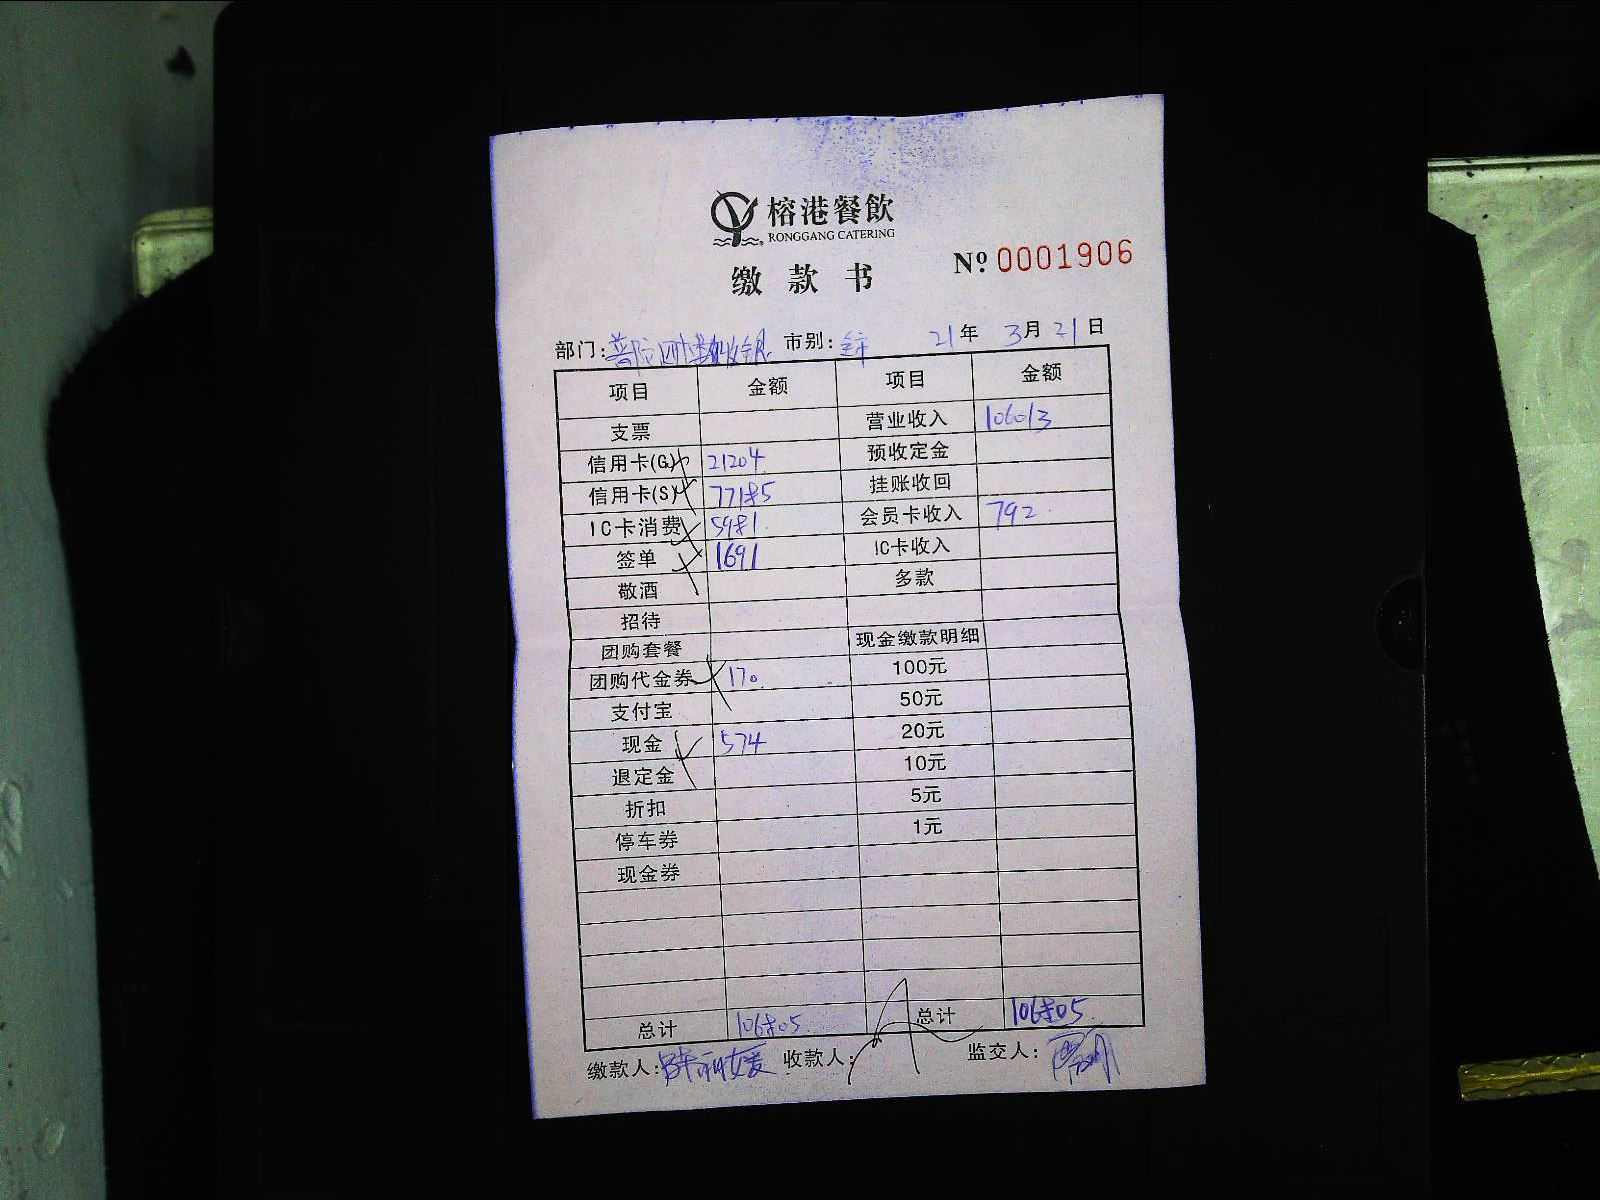 榕港餐飲
RONGGANG CATERING
缴款书 № 0001906
部门: 市别: 全市 21年 3月 21日
项目 金额 项目 金额
支票 营业收入 106013
信用卡(G) 21204 预收定金
信用卡(S) 77185 挂账收回
IC卡消费 5981 会员卡收入 792
签单 1691 IC卡收入
敬酒 多款
招待
团购套餐 现金缴款明细
团购代金券 170 100元
支付宝 50元
现金 574 20元
退定金 10元
折扣 5元
停车券 1元
现金券
总计 106805 总计 106805
缴款人: 收款人: 监交人: